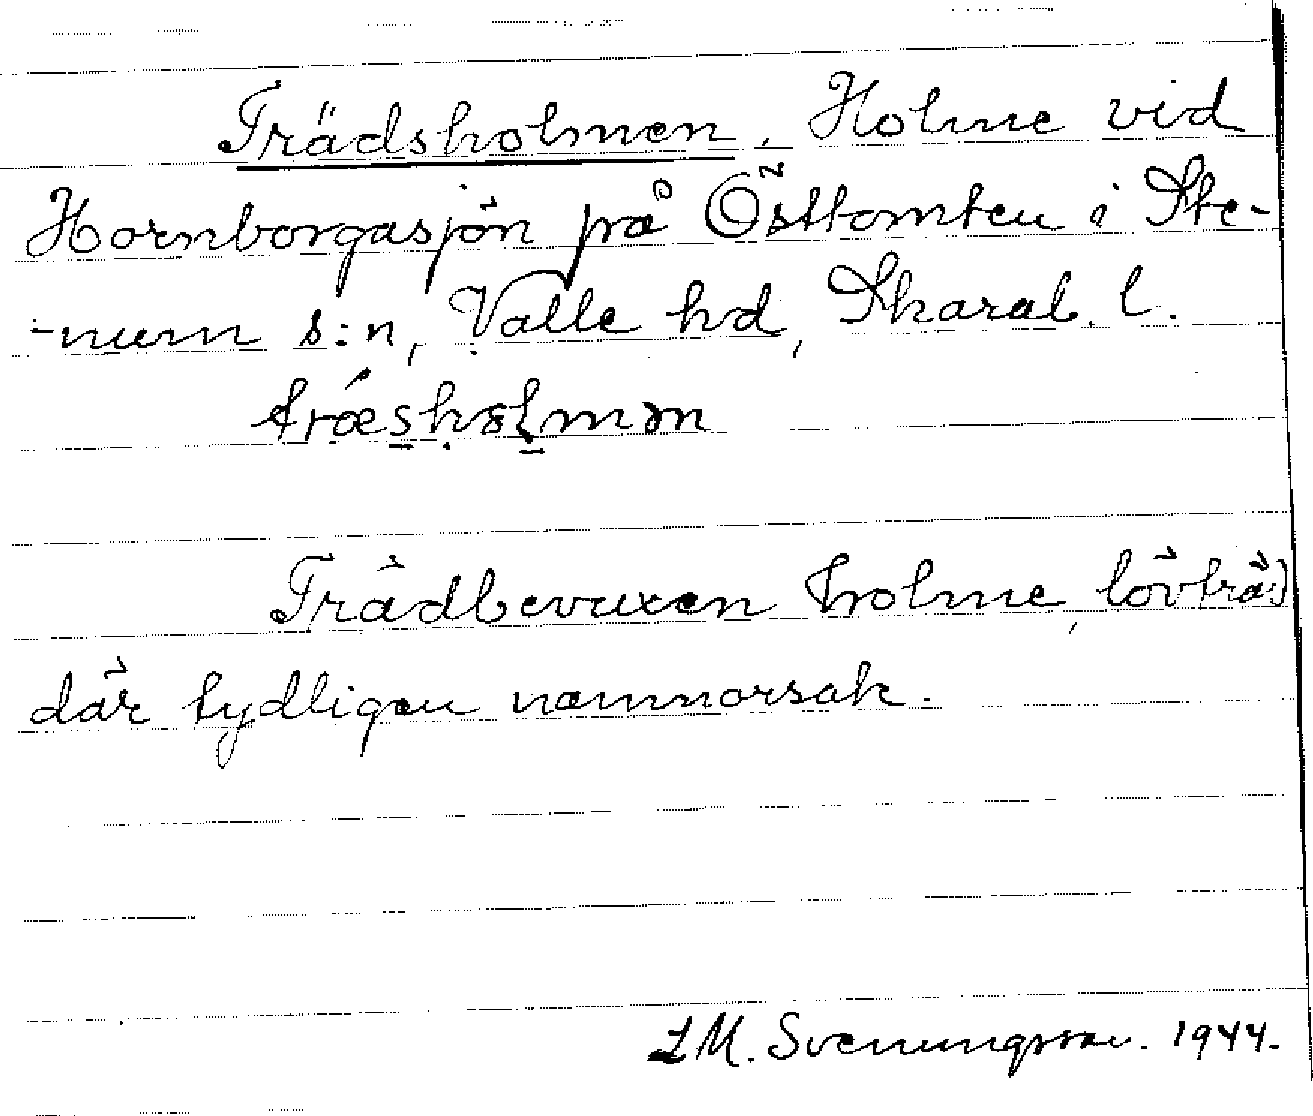 Trädsholmen. Holme vid
Hornborgasjön på Östtomten i Ste-
-num s:n, Valle hd, Skarab. l.
træ̀sholmən
Trädbevuxen holme, lövträd
där tydligen namnorsak.
L M. Svenungsson. 1944.